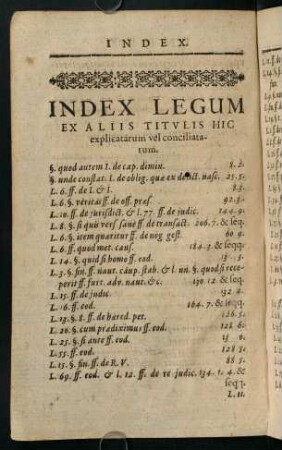 INDEX.
INDEX LEGUM
EX ALIIS TITVLIS HIC
explicatarum vel conciliata-
rum.
§. quod autem I. de cap. dimin. 8. 2.
§ unde constat. I. de oblig. quæ ex delict. nasc. 25. 5.
L. 6. ff. de l. & l.
L. 6. §. veritas ff. de off. præs. 92.
L. 10. ff. de jurisdict. & l. 77. ff. de judic. 144. 9.
L. 8. §. si quis vers. sanè ff. de transact. 206. 7. & seq.
L. 6. §. item quæritur ff. de neg. gest. 60
L. 6. ff. quod met. caus. 184. 3. & seqq.
L. 14. §. quid si homo ff. eod.
L. 3. §. fin. ff. naut. caup. stab. & l. un. §. quod si rece-
perit ff. furt. adv. naut. &c. 130. 12. & seq.
L. 15. ff. de judic. 132. 4.
L. 16. ff. eod. 164. 7. & seqq.
L. 13. §. 8. ff. de hæred. pet. 126. 5.
L. 20. §. cum prædiximus ff. eod. 128
L. 25. §. si ante ff. eod.
L. 55. ff. eod. 128
L. 15. §. fin. ff. de R. V. 88
L. 69. ff. eod. & l. 12. ff. de re judic. 134. 1. 4. &
seqq.
L. 21.